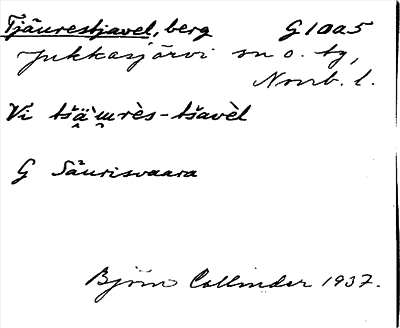 Tjäurestjavel, berg G10a5
Jukkasjärvi sn o. tg,
Norrb. l.
Vi tšä̯'u̯rès-tšavèl
G Säurisvaara
Björn Collinder 1937.